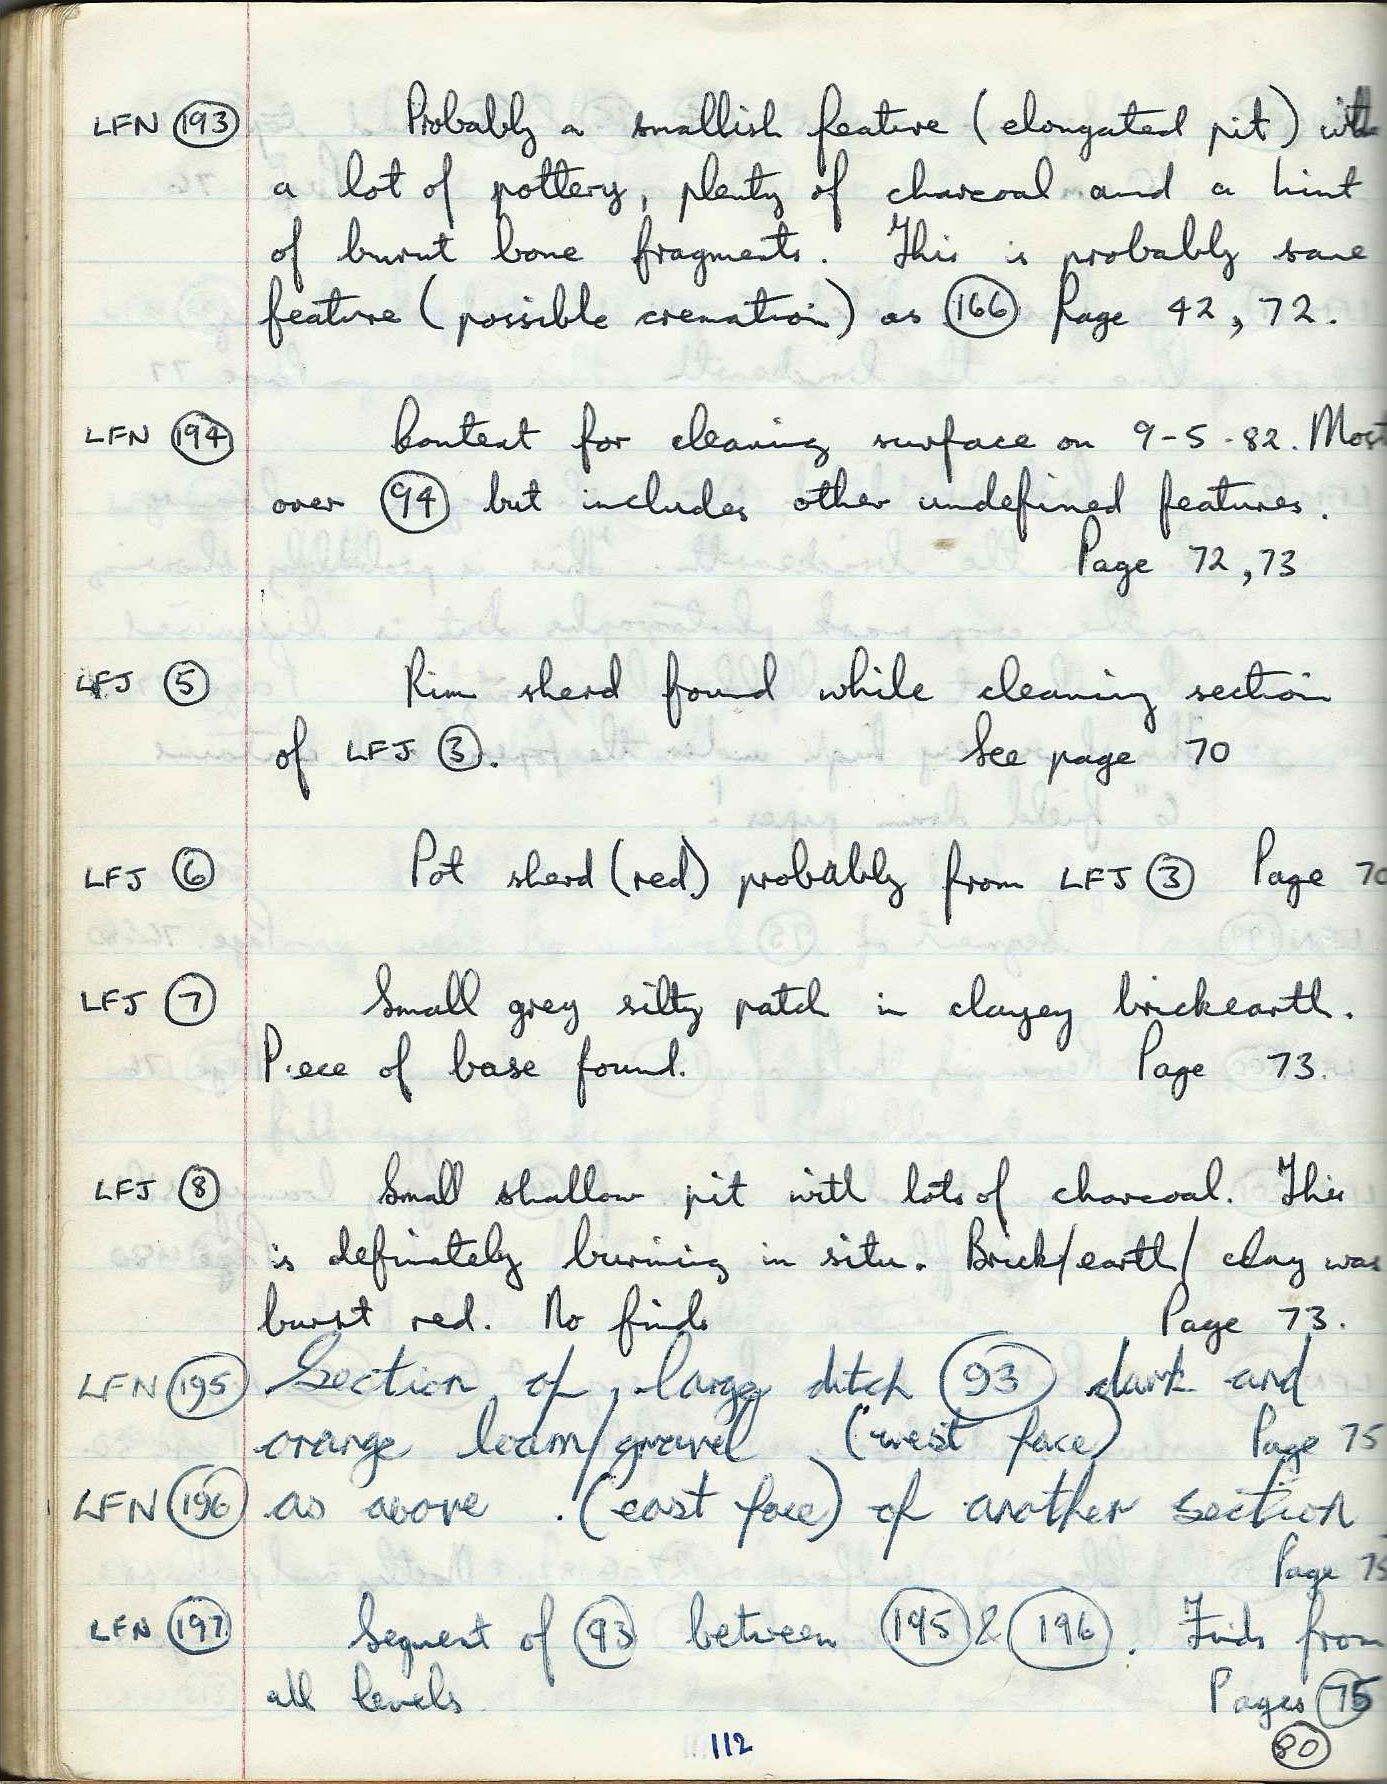 LFN 193 Probably a smallish feature (elongated pit) with
a lot of pottery, plenty of charcoal and a hint
of burnt bone fragments. This is probably same
feature (possible cremation) as 166 Page 42, 72.
LFN 194 Context for cleaning surface on 9-5-82. Most
over 94 but includes other undefined features.
Page 72, 73
LFJ 5 Rim sherd found while cleaning section
of LFJ 3. See page 70
LFJ 6 Pot sherd (red) probably from LFJ 3 Page 70
LFJ 7 Small grey silty patch in clayey brickearth.
Piece of base found. Page 73.
LFJ 8 Small shallow pit with lots of charcoal. This
is definately burning in situ. Brick/earth/ clay was
burnt red. No finds Page 73.
LFN 195 Section of large ditch 93 dark and
orange loam/gravel (west face) Page 75
LFN 196 as above . (east face) of another section
Page 75
LFN 197 Segment of 93 between 195 & 196. Finds from
all levels Pages 75
80
112